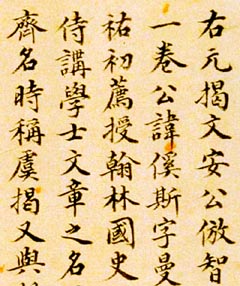 右元揭文安公倣智
一卷公諱傒斯字曼
祐初薦授翰林國史
侍講學士文章之名
齊名時稱虞揭又與